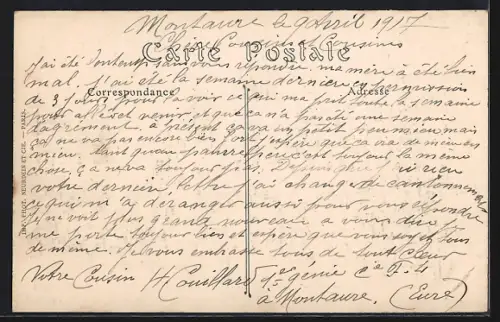 Montaure le 9 Avril 1917
Chers Cousins et Cousines
Carte Postale
J'ai été longtemps sans vous répondre ma mère à été bien
mal. J'ai été la semaine dernière en permission
Correspondance
Adresse
de 3 jours pour la voir ce qui m'a prit toute la semaine
pour aller et venir et que ca n'a pas été une semaine
d'agrément, à présent ça va un petit peu mieux mais
ca ne va pas encore bien fort j'espère que ca ira de mieu en
mieu. Quant au pauvre père c'est toujour la même
chose, ça ne va toujour pas. Depuis que j'ai reçu
votre dernière lettre j'ai changé de cantonnement
ce qui m'a déranger aussi pour vous répondre
Je ne voit plus grand nouveau à vous dire
me porte toujour bien et espère que vous soyez tous
de même. Je vous embrasse tous de tout cœur
Votre Cousin H Couillard 1er génie Cie
à Montaure (Eure)
IMP. PHOT. NEURDEIN ET CIE. — PARIS